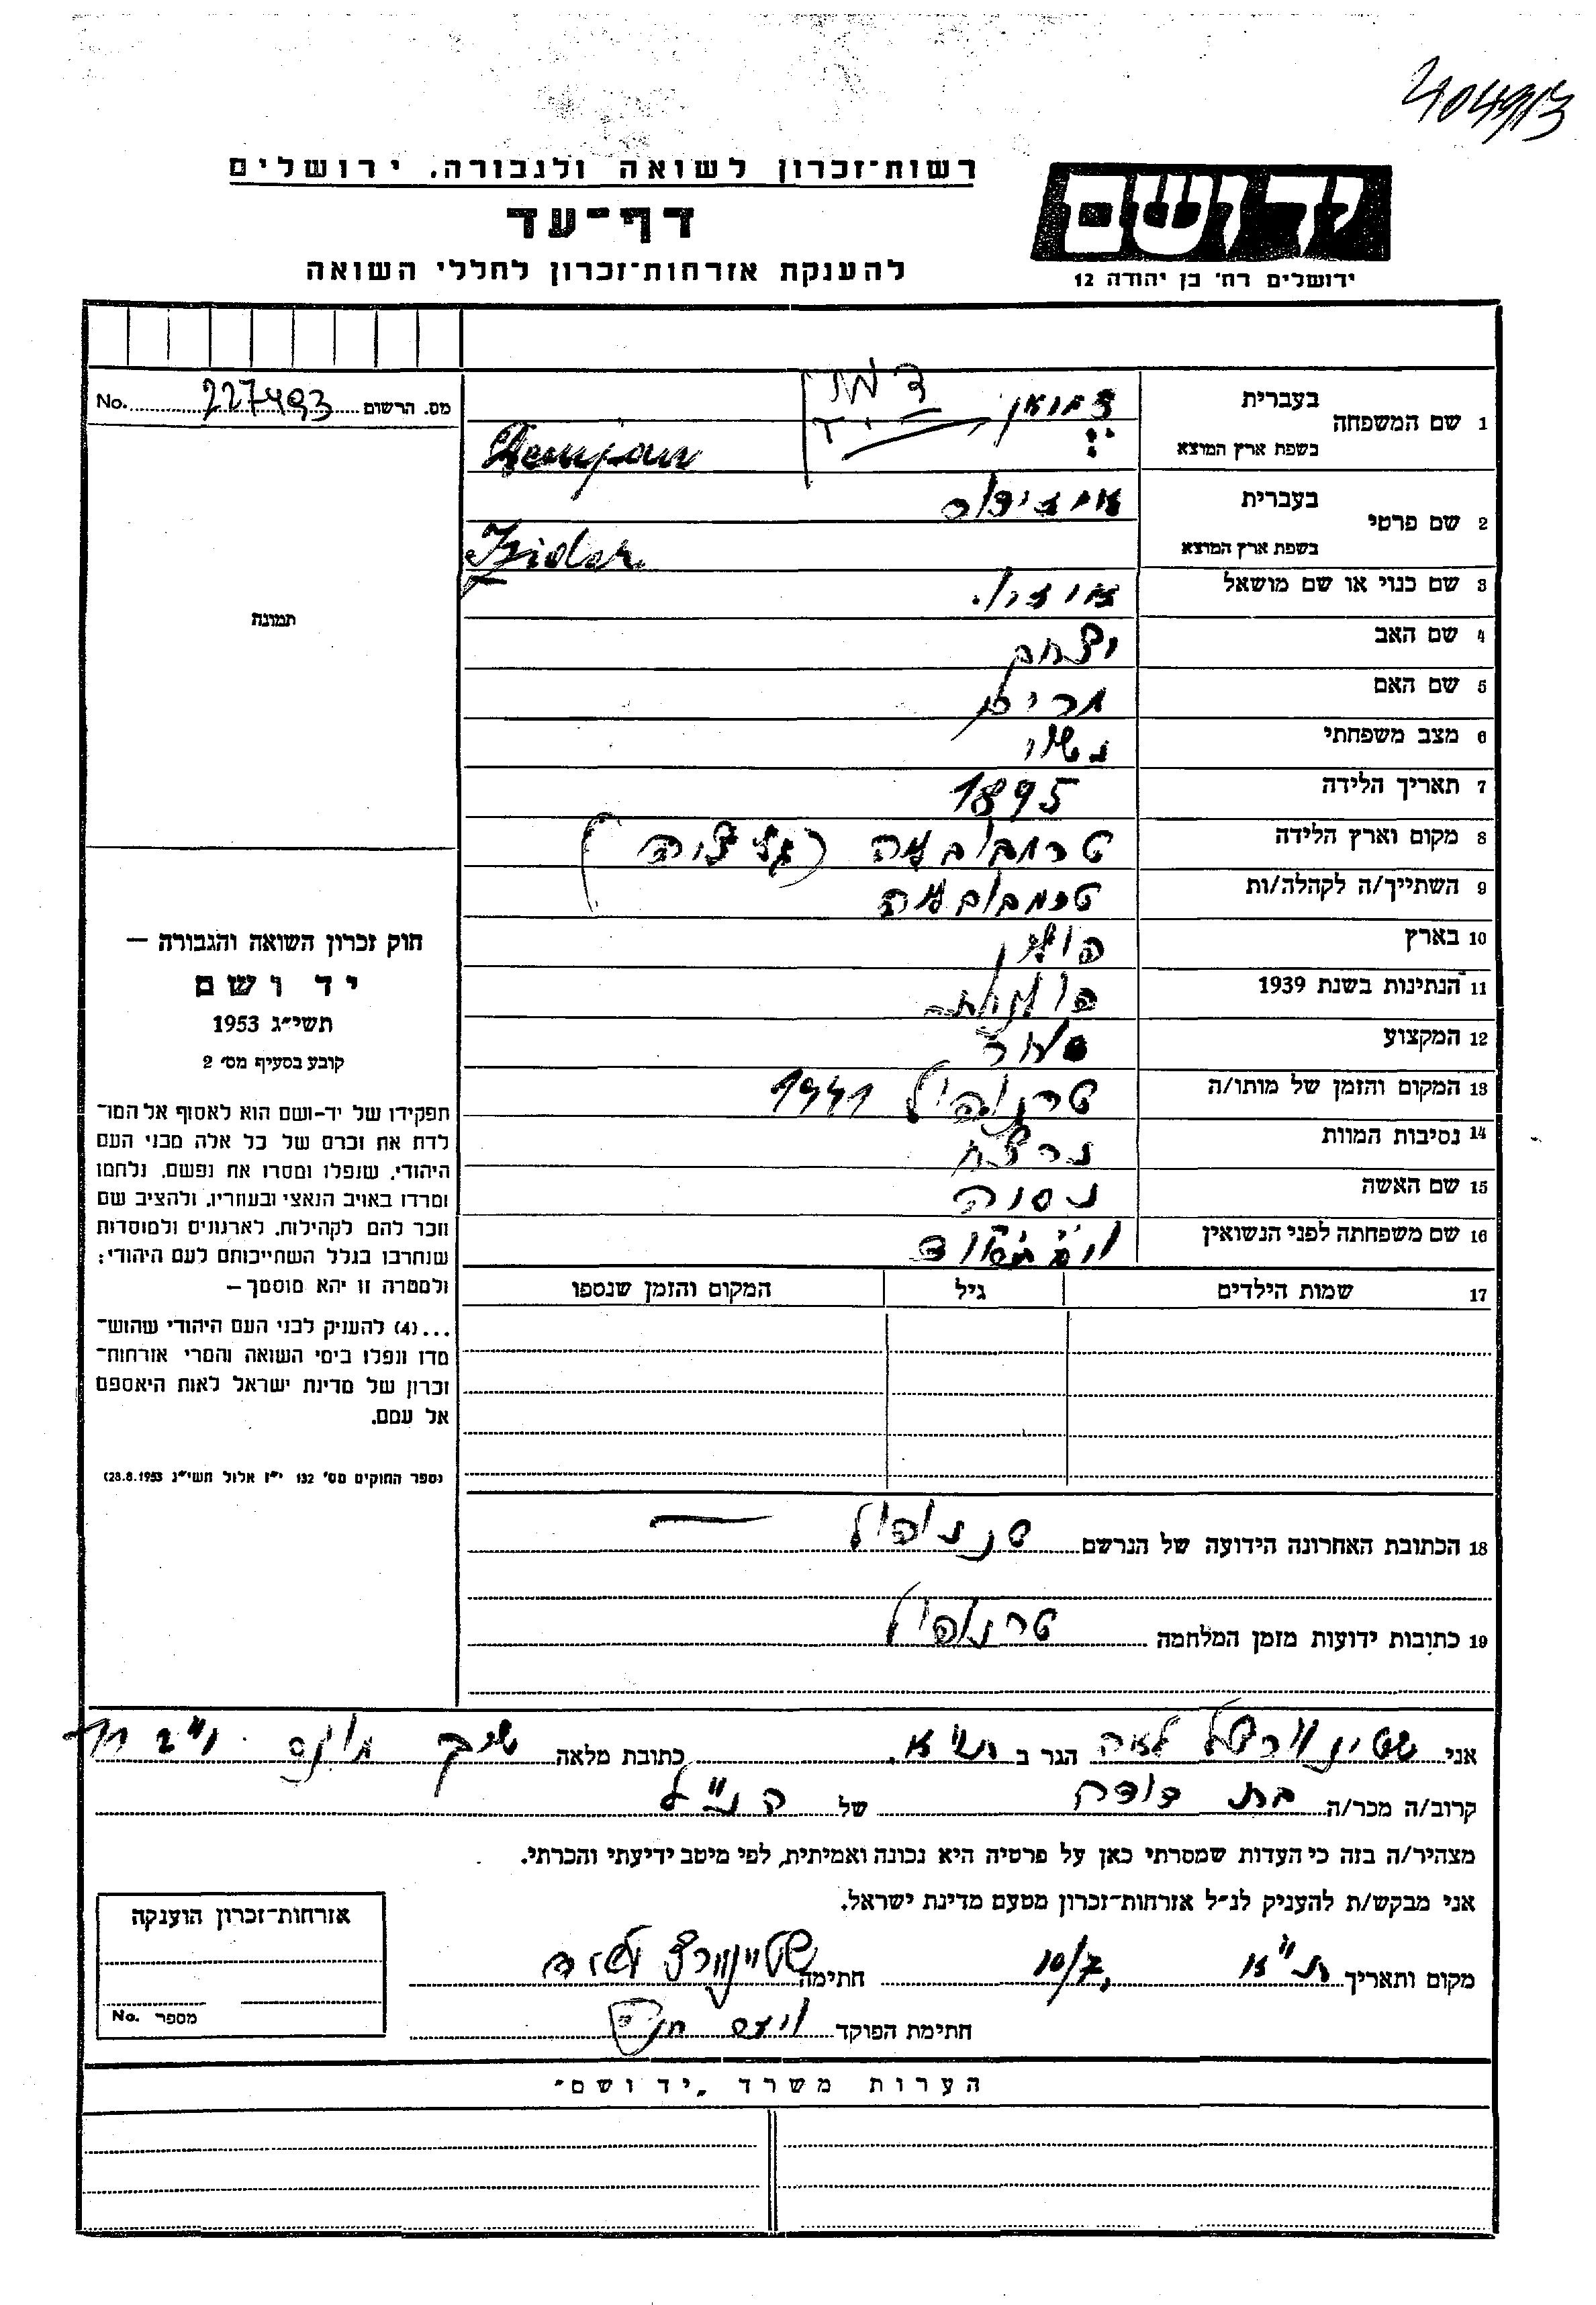 404913
רשות־זכרון לשואה ולגבורה. ירושלים
דף־עד
להענקת אזרחות־זכרון לחללי השואה
יד ושם
ירושלים רח' בן יהודה 12
No. 227493 מס. הרשום
1 שם המשפחה בעברית
בשפת ארץ המוצא Demjan
2 שם פרטי בעברית איזידור
בשפת ארץ המוצא Izidor
3 שם כנוי או שם מושאל
4 שם האב יצחק
5 שם האם מרים
6 מצב משפחתי נשוי
7 תאריך הלידה 1895
8 מקום וארץ הלידה טרמבובלה (גליציה)
9 השתייך/ה לקהלה/ות טרמבובלה
10 בארץ פולין
11 הנתינות בשנת 1939 פולנית
12 המקצוע סוחר
13 המקום והזמן של מותו/ה טרנופול 1941
14 נסיבות המוות נרצח
15 שם האשה
16 שם משפחתה לפני הנשואין
17 שמות הילדים גיל המקום והזמן שנספו
18 הכתובת האחרונה הידועה של הנרשם טרנופול —
19 כתובות ידועות מזמן המלחמה טרנופול
תמונה
חוק זכרון השואה והגבורה —
יד ושם
תשי״ג 1953
קובע בסעיף מס׳ 2
תפקידו של יד-ושם הוא לאסוף אל המו־
לדת את זכרם של כל אלה מבני העם
היהודי, שנפלו ומסרו את נפשם, נלחמו
ומרדו באויב הנאצי ובעוזריו, ולהציב שם
וזכר להם לקהילות, לארגונים ולמוסדות
שנחרבו בגלל השתייכותם לעם היהודי;
ולמטרה זו יהא מוסמך —
...(4) להעניק לבני העם היהודי שהוש־
מדו ונפלו בימי השואה והמרי אזרחות־
זכרון של מדינת ישראל לאות היאספם
אל עמם.
(ספר החוקים מס׳ 132 י״ז אלול תשי״ג 28.8.1953)
אני לאה הגר ב ת״א כתובת מלאה
קרוב/ה מכר/ה בת דודה של הנ״ל
מצהיר/ה בזה כי העדות שמסרתי כאן על פרטיה היא נכונה ואמיתית, לפי מיטב ידיעתי והכרתי.
אני מבקש/ת להעניק לנ״ל אזרחות־זכרון מטעם מדינת ישראל.
מקום ותאריך ת״א, 10/7 חתימה
חתימת הפוקד
אזרחות־זכרון הוענקה
מספר No.
הערות משרד „יד ושם״